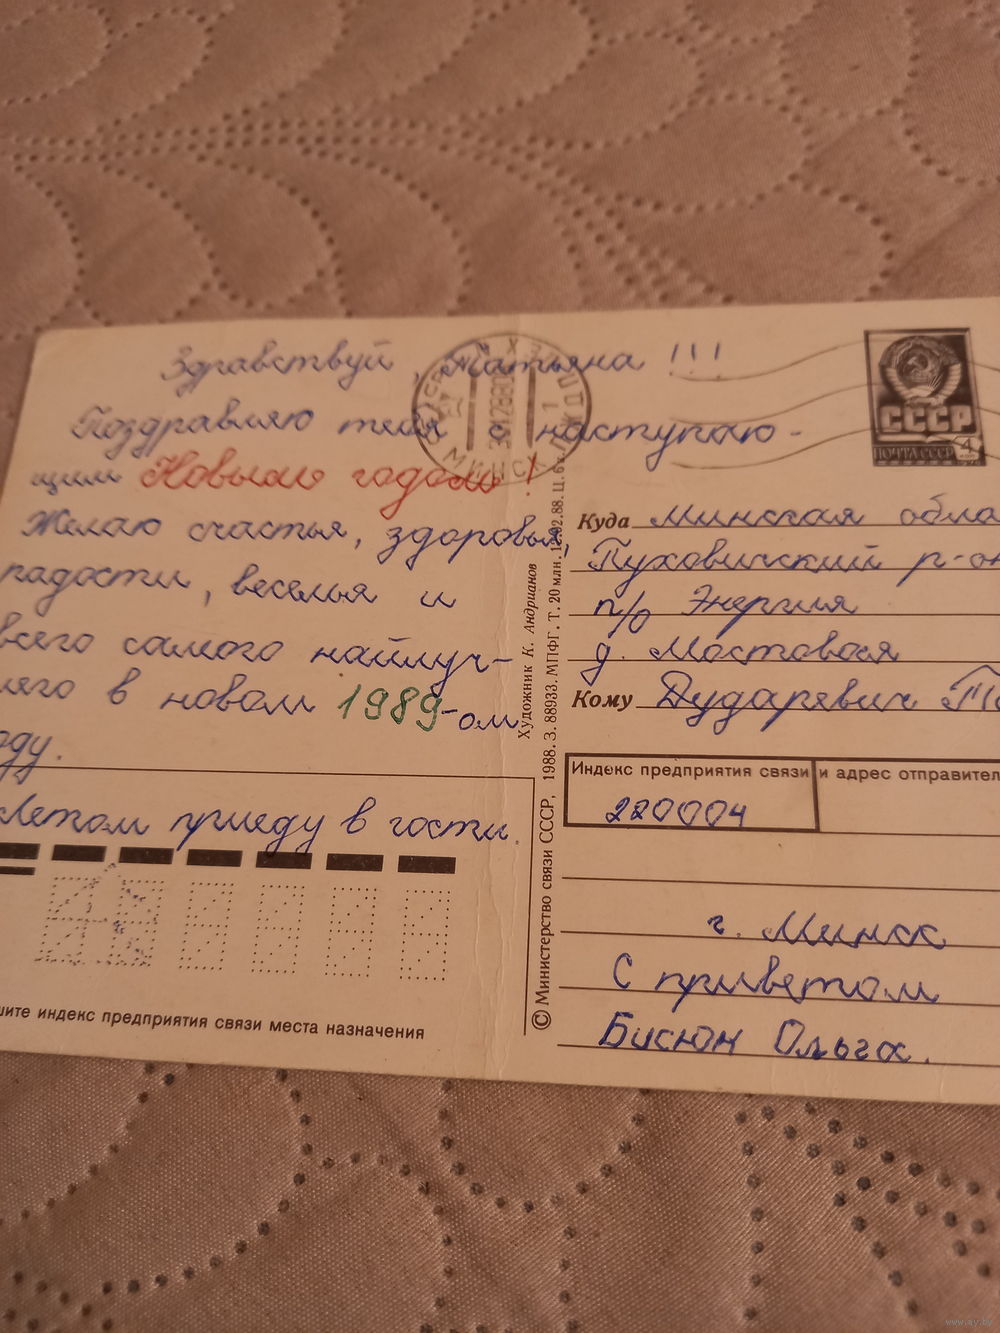 Здравствуй, Татьяна!!!
Поздравляю тебя с наступаю-
щим Новым годом!
Желаю счастья, здоровья,
радости, веселья и
всего самого найлуч-
его в новом 1989-ом
оду.
Летом приеду в гости.
шите индекс предприятия связи места назначения
МИНСК
Художник К. Андрианов
© Министерство связи СССР, 1988. З. 88933. МПФГ. Т. 20 млн. 12.02.88. Ц. 6
СССР
ПОЧТА СССР
4
Куда Минская обла
Пуховичский р-он
п/о Энергия
д. Мостовая
Кому Дударевич
Индекс предприятия связи и адрес отправител
220004
г. Минск
С приветом
Бисюн Ольга.
www.ay.by